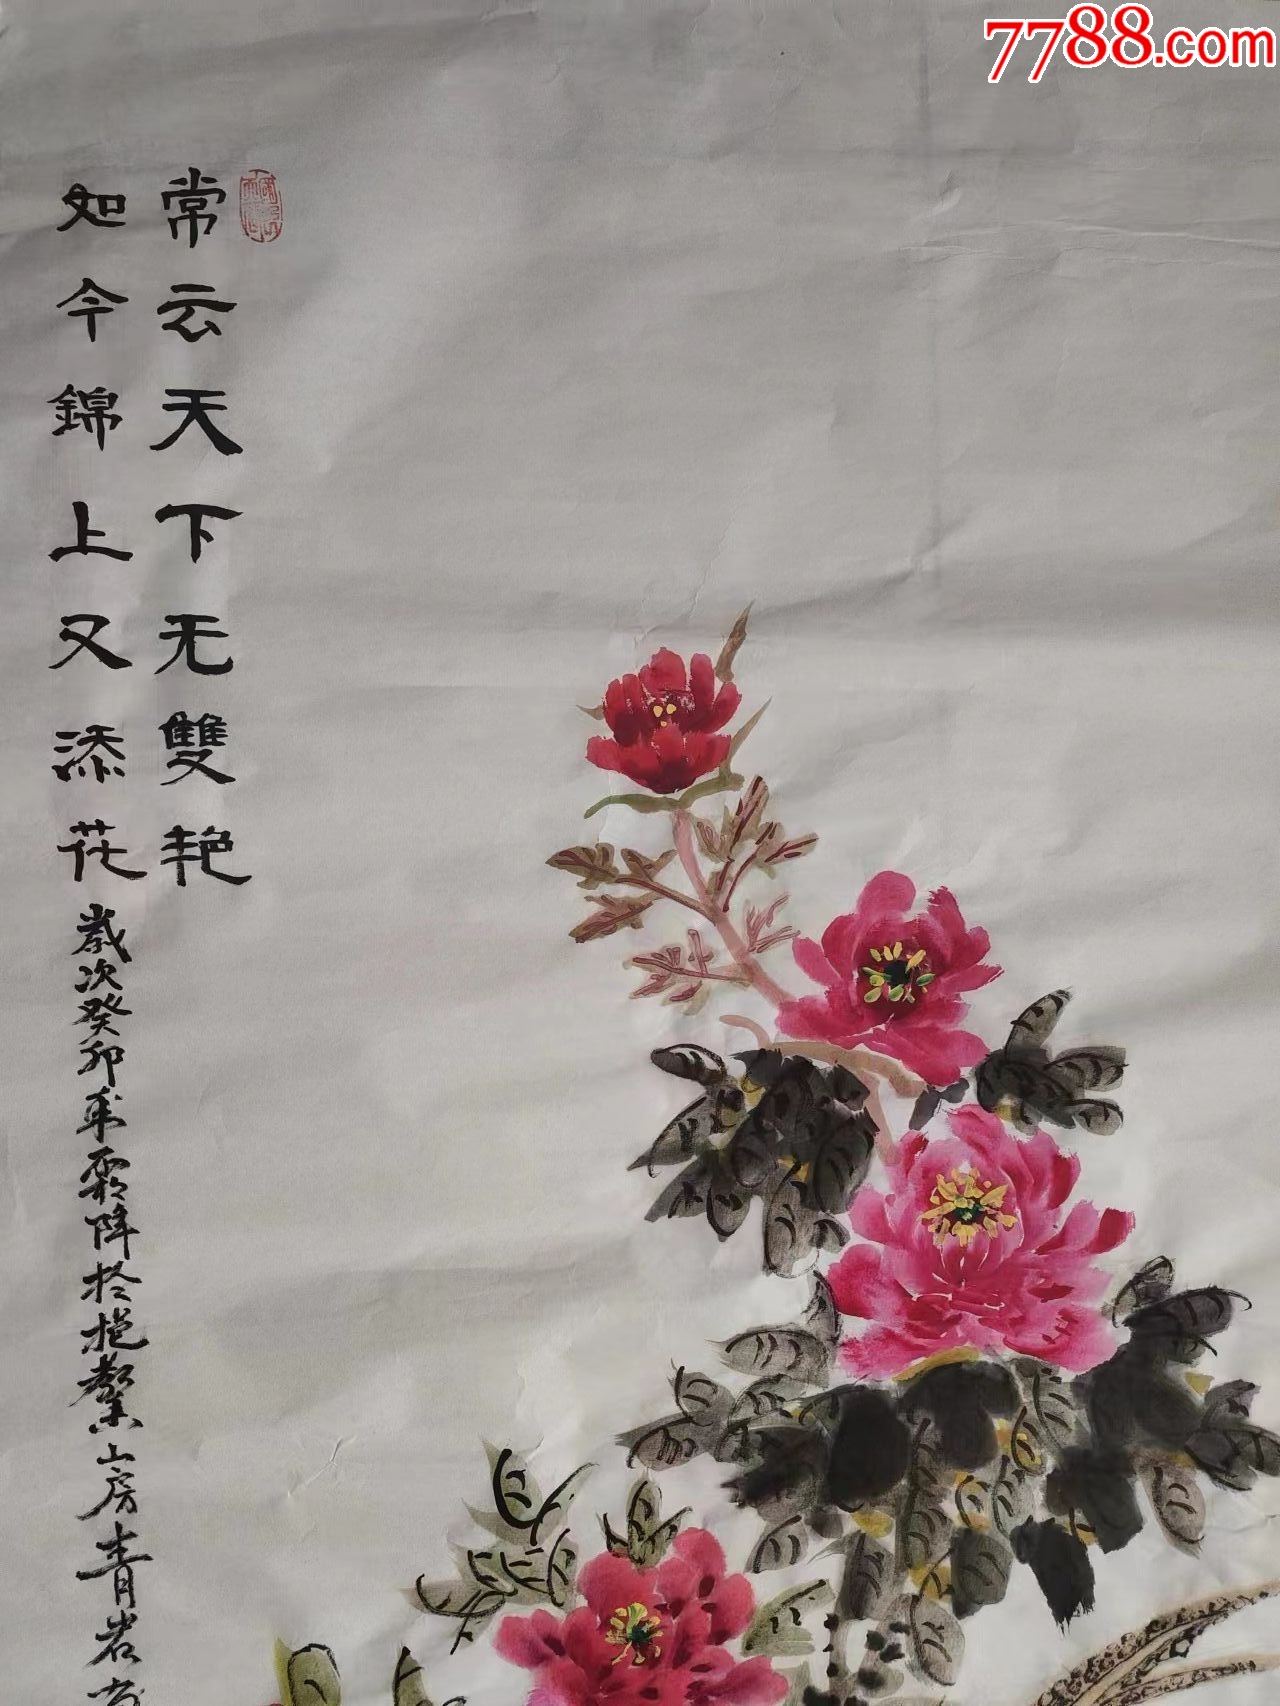 7788.com
常云天下无雙艳
如今錦上又添花
歲次癸卯年霜降於挹繁山房青岩